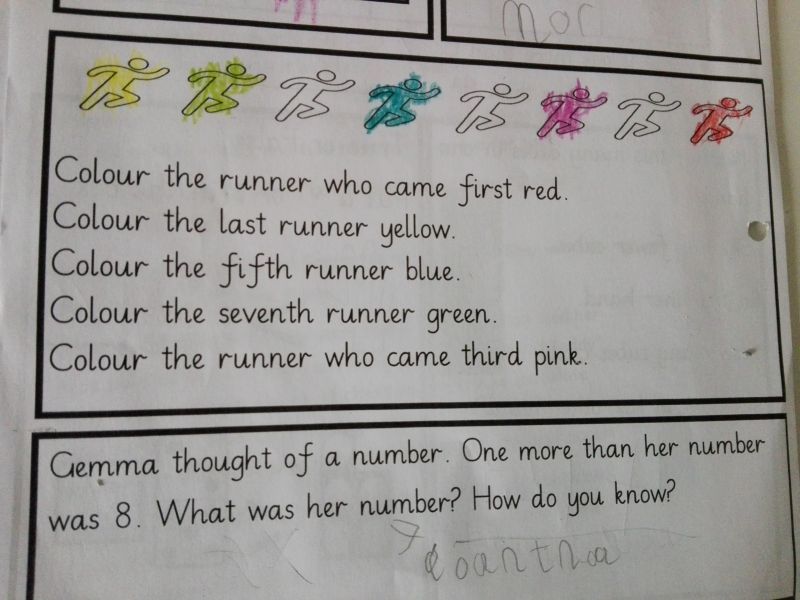 mor
Colour the runner who came first red.
Colour the last runner yellow.
Colour the fifth runner blue.
Colour the seventh runner green.
Colour the runner who came third pink.
Gemma thought of a number. One more than her number
was 8. What was her number? How do you know?
7